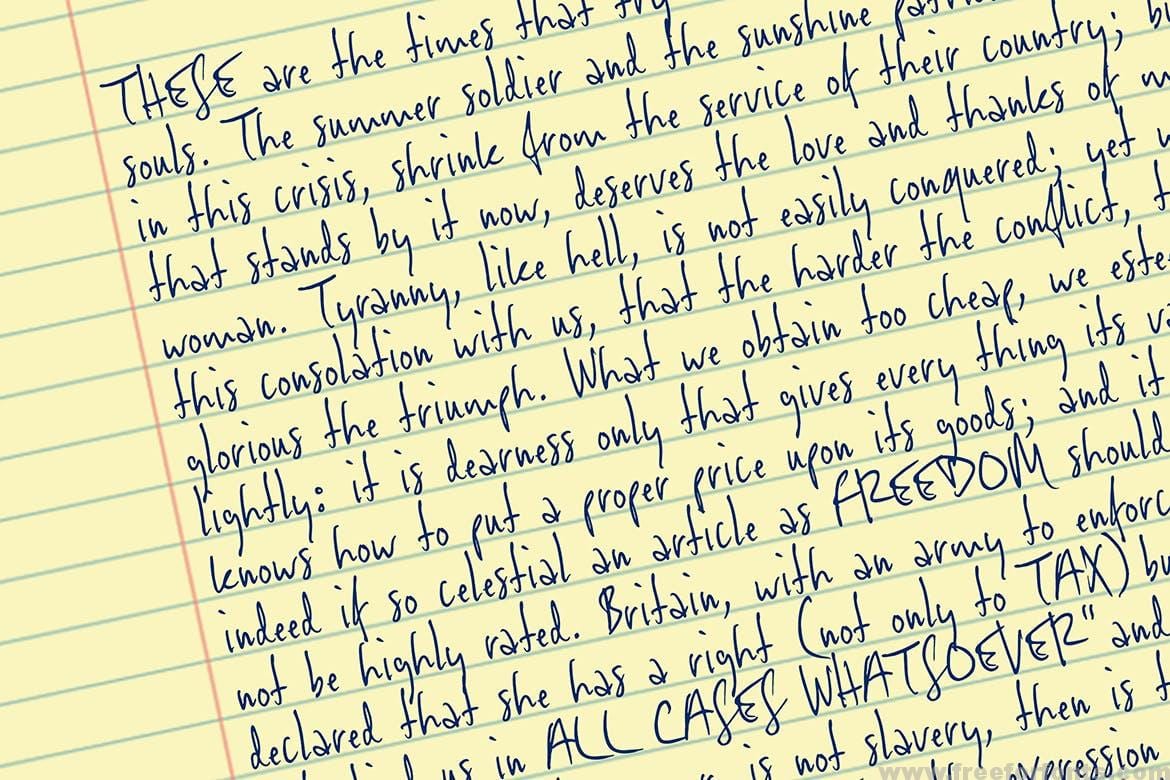 THESE are the times that try
souls. The summer soldier and the sunshine
in this crisis, shrink from the service of their country;
that stands by it now, deserves the love and thanks of
woman. Tyranny, like hell, is not easily conquered; yet
this consolation with us, that the harder the conflict,
glorious the triumph. What we obtain too cheap, we
lightly: it is dearness only that gives every thing its
knows how to put a proper price upon its goods; and it
indeed if so celestial an article as FREEDOM should
not be highly rated. Britain, with an army to
declared that she has a right (not only to TAX)
us in ALL CASES WHATSOEVER" and
is not slavery, then is